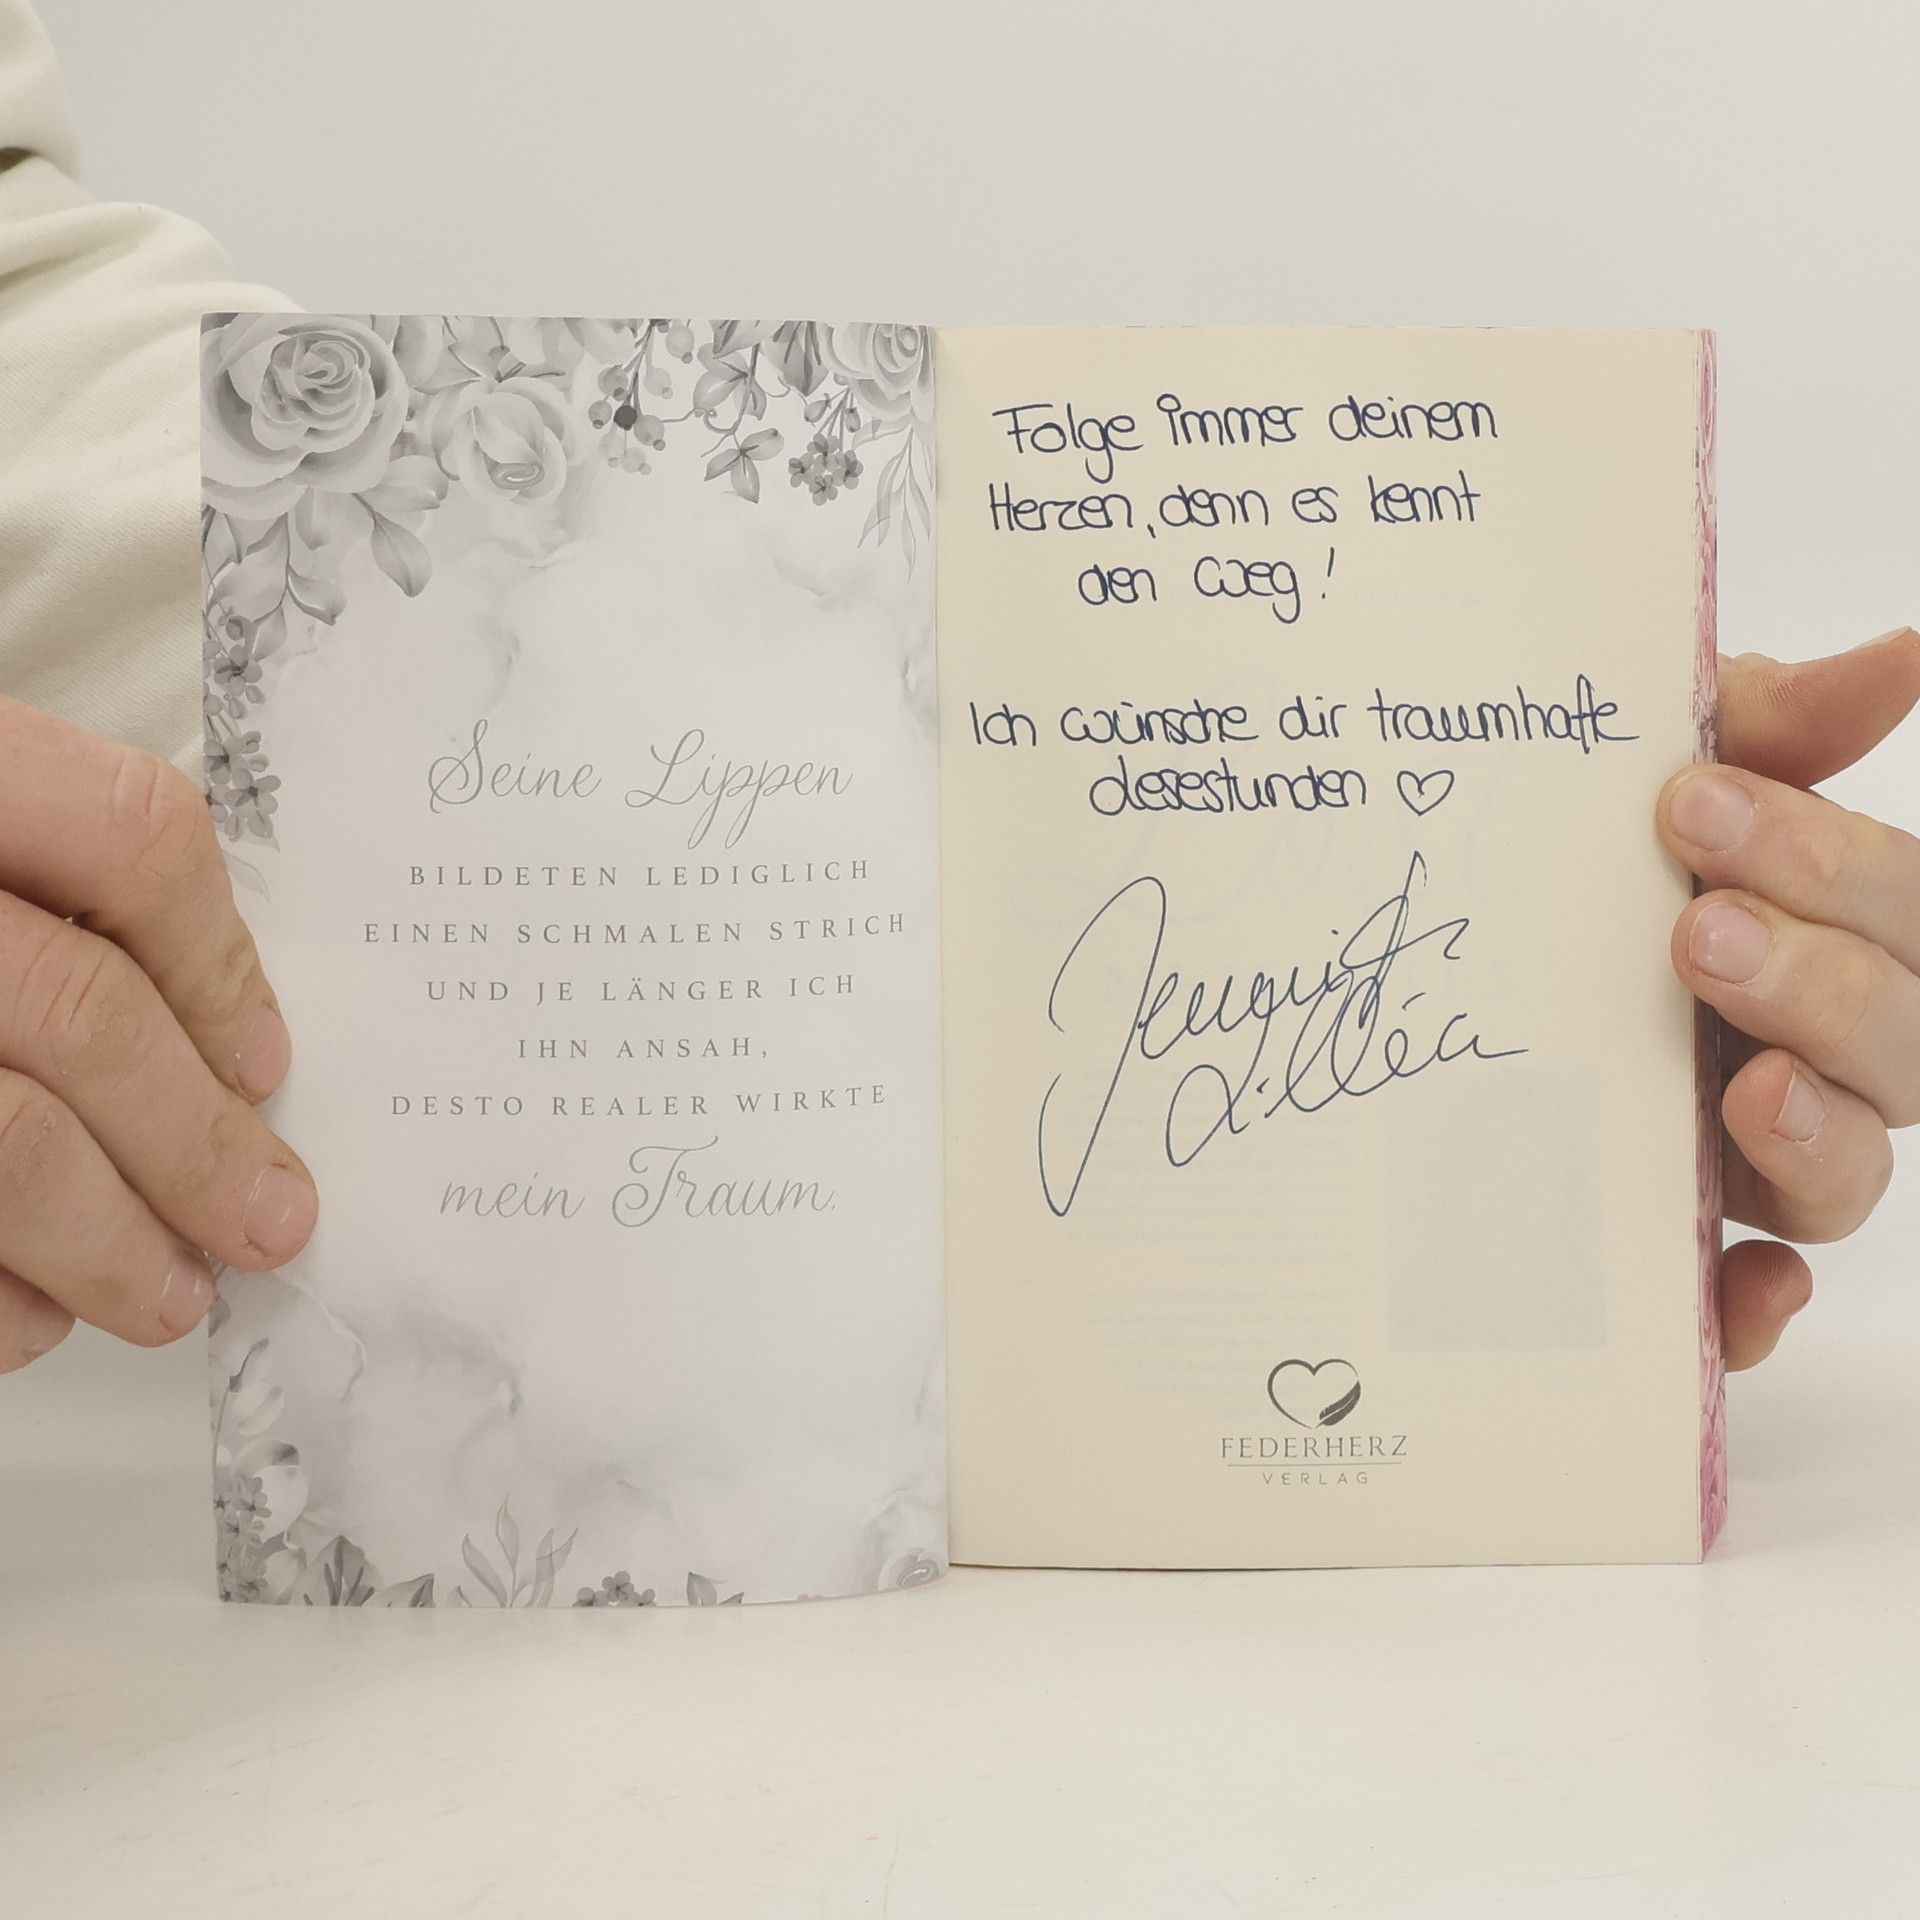 Seine Lippen
BILDETEN LEDIGLICH
EINEN SCHMALEN STRICH
UND JE LÄNGER ICH
IHN ANSAH,
DESTO REALER WIRKTE
mein Traum.
Folge immer deinem
Herzen, denn es kennt
den Weg!
Ich wünsche dir traumhafte
Lesestunden ♡
FEDERHERZ
VERLAG